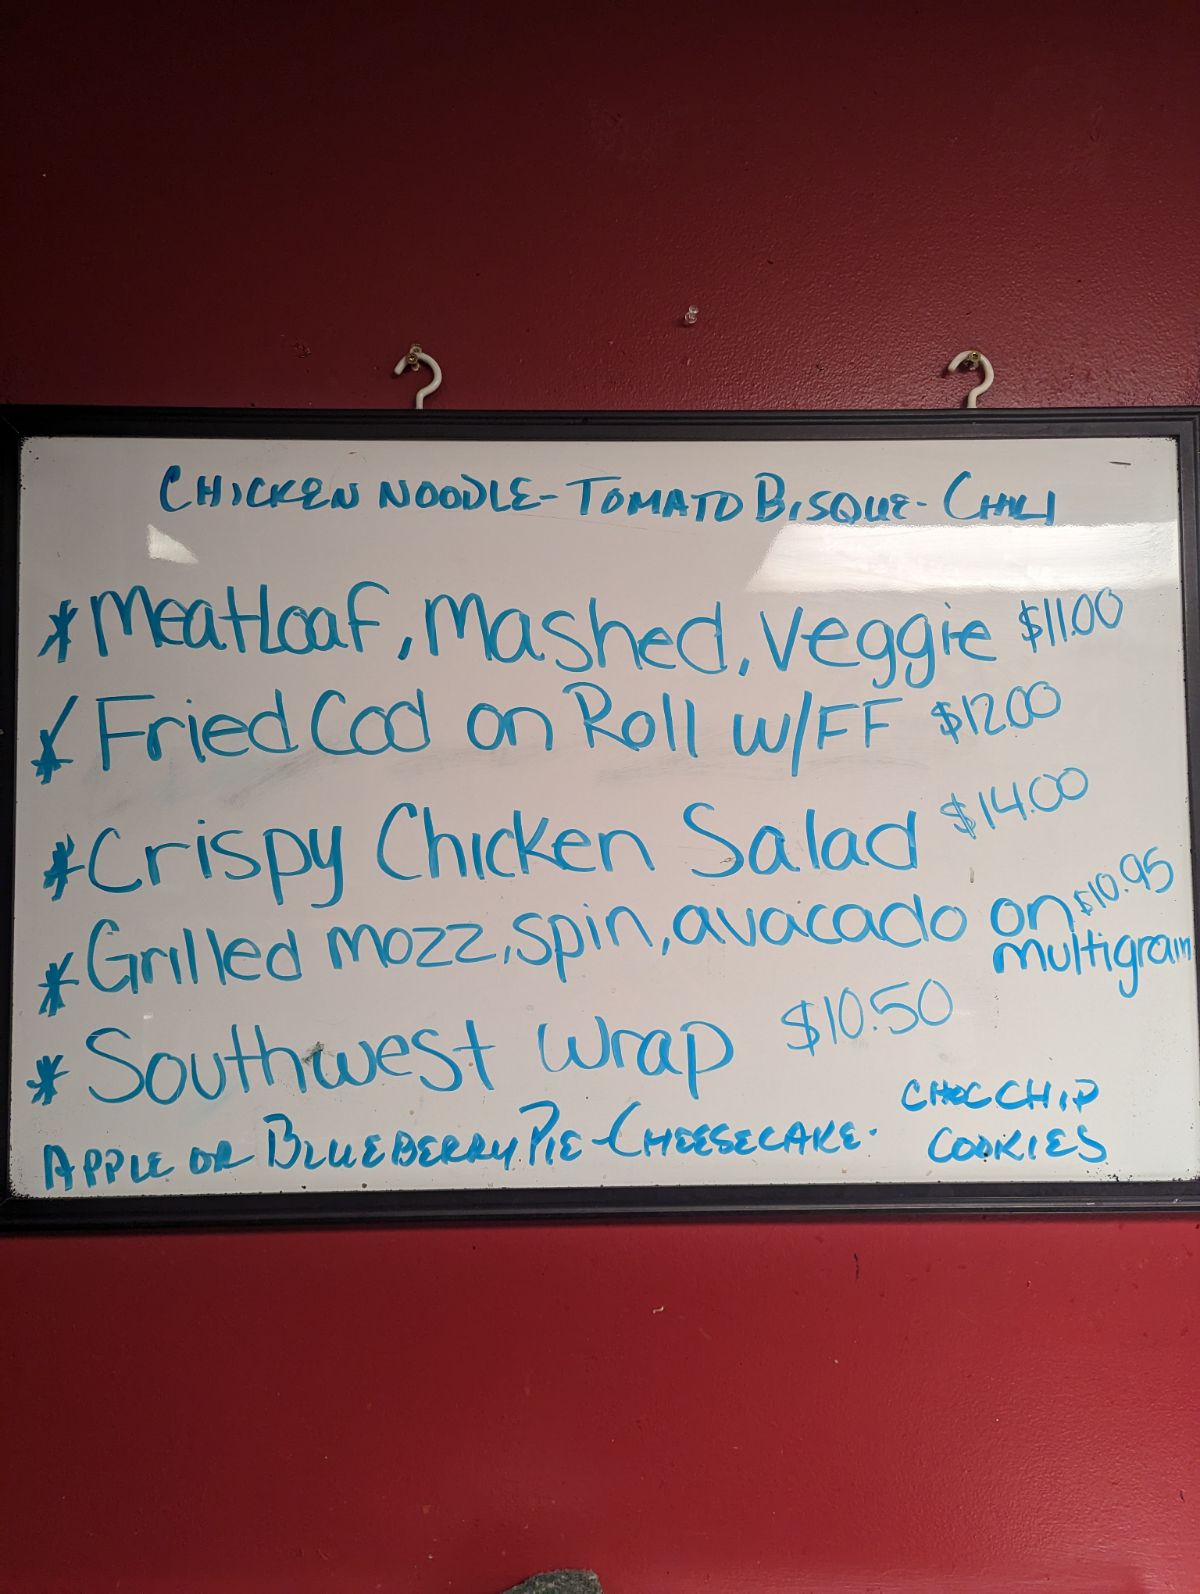 CHICKEN NOODLE - TOMATO BISQUE - CHILI
* Meatloaf, Mashed, Veggie $11.00
* Fried Cod on Roll w/FF $12.00
* Crispy Chicken Salad $14.00
* Grilled mozz, spin, avacado on multigrain $10.95
* Southwest Wrap $10.50
APPLE OR BLUEBERRY PIE - CHEESECAKE - CHOC CHIP COOKIES